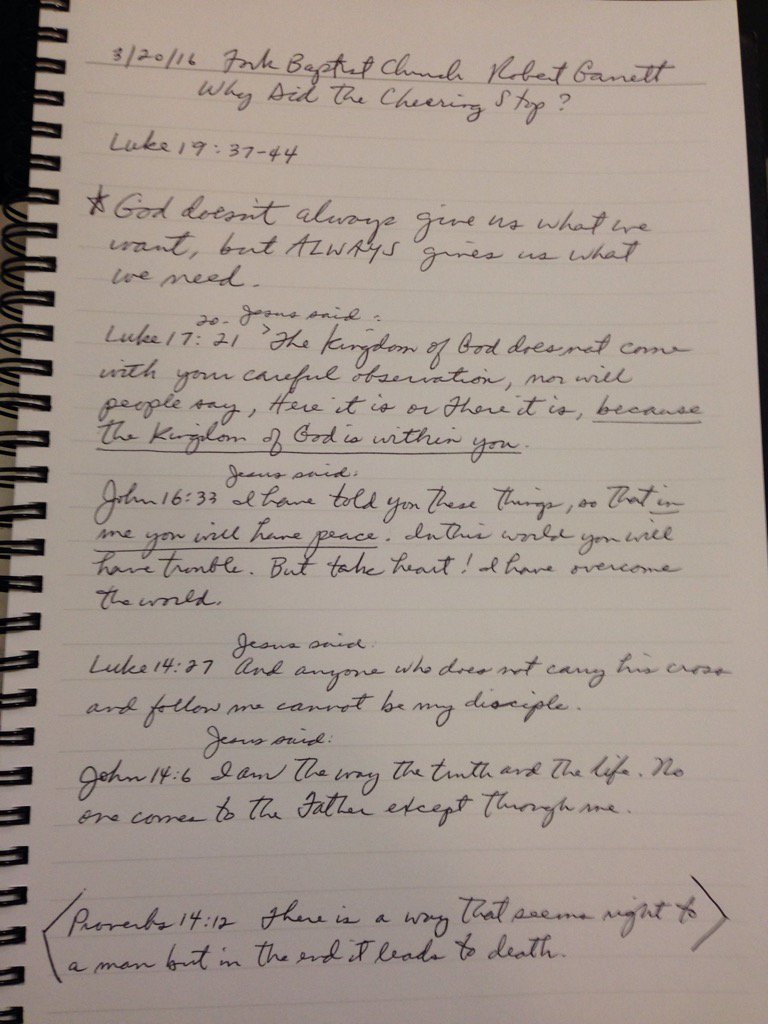 3/20/16 Fork Baptist Church Robert Garrett
Why Did The Cheering Stop?
Luke 19:37-44
* God doesn't always give us what we
want, but ALWAYS gives us what
we need.
20- Jesus said:
Luke 17:21 > The Kingdom of God does not come
with your careful observation, nor will
people say, Here it is or There it is, because
the Kingdom of God is within you.
Jesus said:
John 16:33 I have told you these things, so that in
me you will have peace. In this world you will
have trouble. But take heart! I have overcome
the world.
Jesus said:
Luke 14:27 And anyone who does not carry his cross
and follow me cannot be my disciple.
Jesus said:
John 14:6 I am the way the truth and the life. No
one comes to the Father except through me.
<Proverbs 14:12 There is a way that seems right to
a man but in the end it leads to death.>